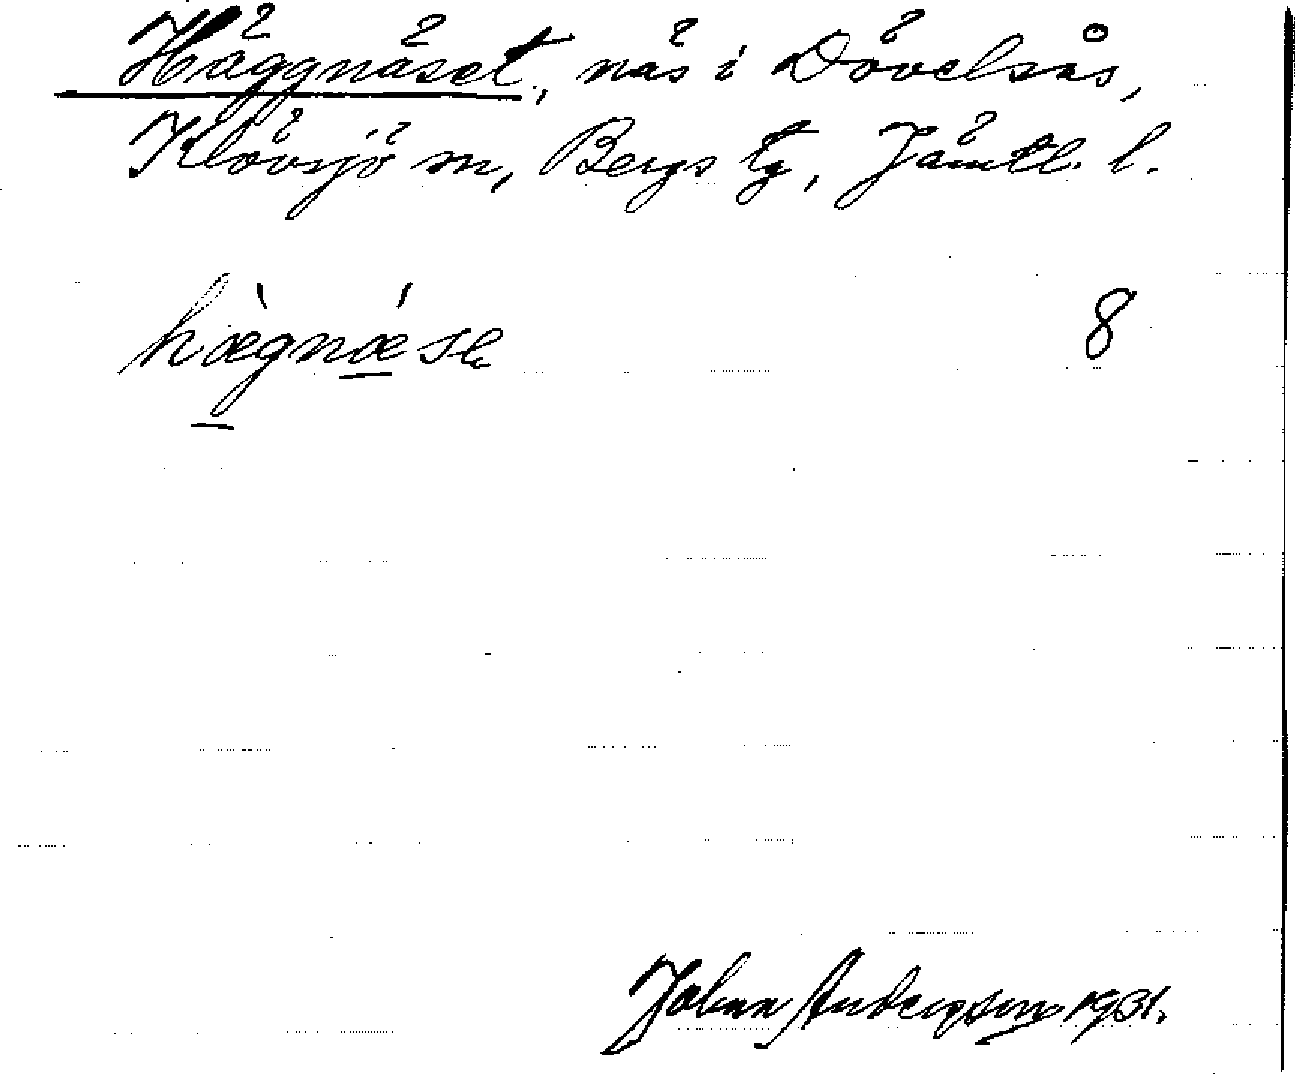 Häggnäset, näs i Dövelsås,
Klövsjö sn, Bergs tg, Jämtl. l.
hæ̀gnǽse 8
Johan Andersson 1931.